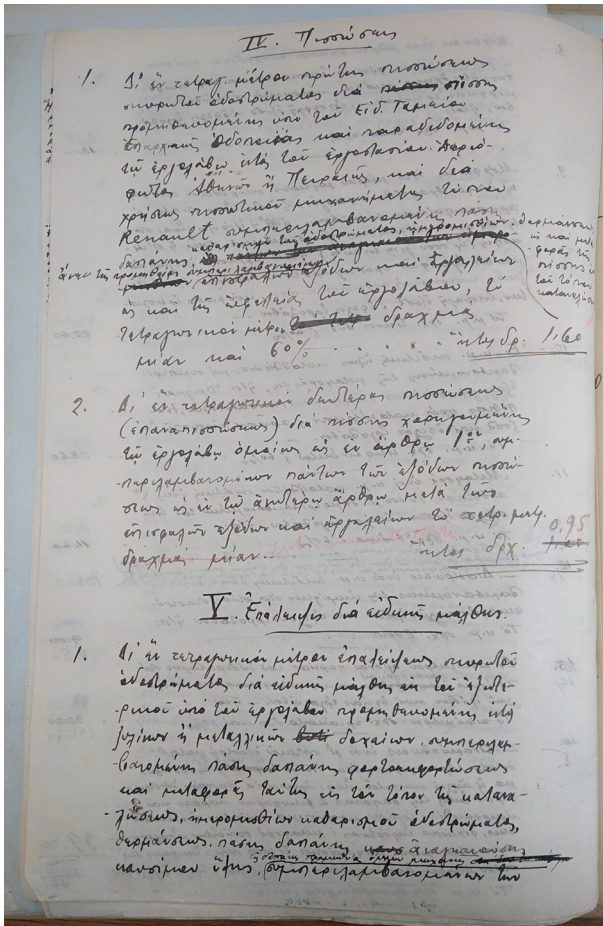 IV. Πισσώσεις
1. Δι' ἕν τετραγ. μέτρον πρώτης πισσώσεως
σκυρωτοῦ ὁδοστρώματος διά πίσσης
προμηθευομένης ὑπό τοῦ Εἰδ. Ταμείου
Ἐπαρχιακῆς Ὁδοποιΐας καί παραδιδομένης
τῷ ἐργολάβῳ ἐντός τοῦ ἐργοστασίου Ἀεριό-
φωτος Ἀθηνῶν ἤ Πειραιῶς, καί διά
χρήσεως πισσωτικοῦ μηχανήματος τύπου
Renault συμπεριλαμβανομένης πάσης
δαπάνης καθαρισμοῦ τοῦ ὁδοστρώματος, ἡμερομισθίων, θερμάνσεως
καί μετα-
φορᾶς τῆς
πίσσης
τόν τόπον
καταναλώσεως
ἄνευ τῆς προμηθείας
ἐπισφαλῶν ἐξόδων καί ἐργαλείων
ὡς καί τῆς ὠφελείας τοῦ ἐργολάβου, τό
τετραγωνικόν μέτρον δραχμάς
μίαν καί 60% ἤτοι δρ. 1,60
2. Δι' ἕν τετραγωνικόν δευτέρας πισσώσεως
(ἐπαναπισσώσεως) διά πίσσης χορηγουμένης
τῷ ἐργολάβῳ ὁμοίως ὡς ἐν ἄρθρῳ 1ῳ, συμ-
περιλαμβανομένων πάντων τῶν ἐξόδων πισσώ-
σεως ὡς ἐν τῷ ἀνωτέρω ἄρθρῳ μετά τῶν
ἐπισφαλῶν ἐξόδων καί ἐργαλείων τό τετρ. μετρ.
δραχμάς μίαν.. ἤτοι δρχ. 0,95
V. Ἐπάλειψις διά εἰδικῆς μάλθης.
1. Δι' ἕν τετραγωνικόν μέτρον ἐπαλείψεως σκυρωτοῦ
ὁδοστρώματος διά εἰδικῆς μάλθης ἐκ τοῦ ἐξωτε-
ρικοῦ ὑπό τοῦ ἐργολάβου προμηθευομένης ἐντός
ξυλίνων ἤ μεταλλικῶν δοχείων, συμπεριλαμ-
βανομένης πάσης δαπάνης φορτοεκφορτώσεως
καί μεταφορᾶς ταύτης εἰς τόν τόπον τῆς κατανα-
λώσεως, ἡμερομισθίων καθαρισμοῦ ὁδοστρώματος,
θερμάνσεως, πάσης δαπάνης ἀναγκαιούσης
καυσίμου ὕλης, συμπεριλαμβανομένων τῶν